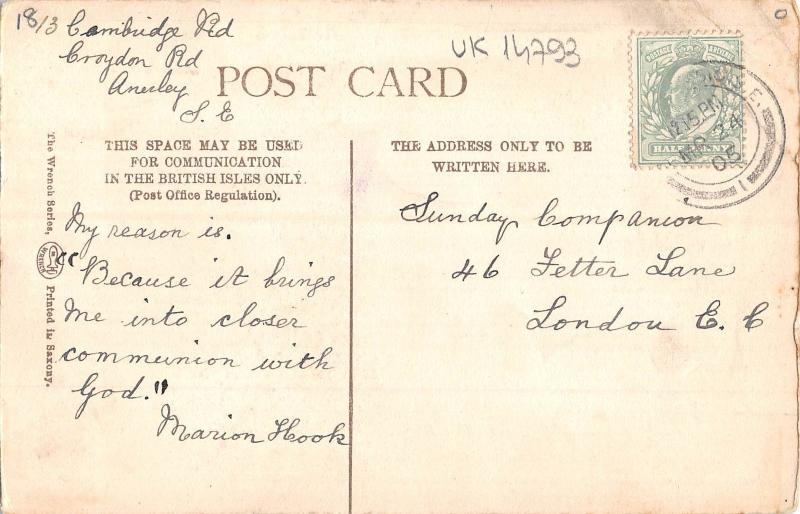 18/3 Cambridge Rd
Croydon Rd
Anerley
S. E
UK 14793
POST CARD
THIS SPACE MAY BE USED
FOR COMMUNICATION
IN THE BRITISH ISLES ONLY.
(Post Office Regulation).
THE ADDRESS ONLY TO BE
WRITTEN HERE.
POSTAGE
HALFPENNY
S.E.
.15 PM
24
05
1
The Wrench Series,
WRENCH
Printed in Saxony.
My reason is.
"Because it brings
Me into closer
communion with
God."
Marion Hook
Sunday Companion
46 Fetter Lane
London E. C
0